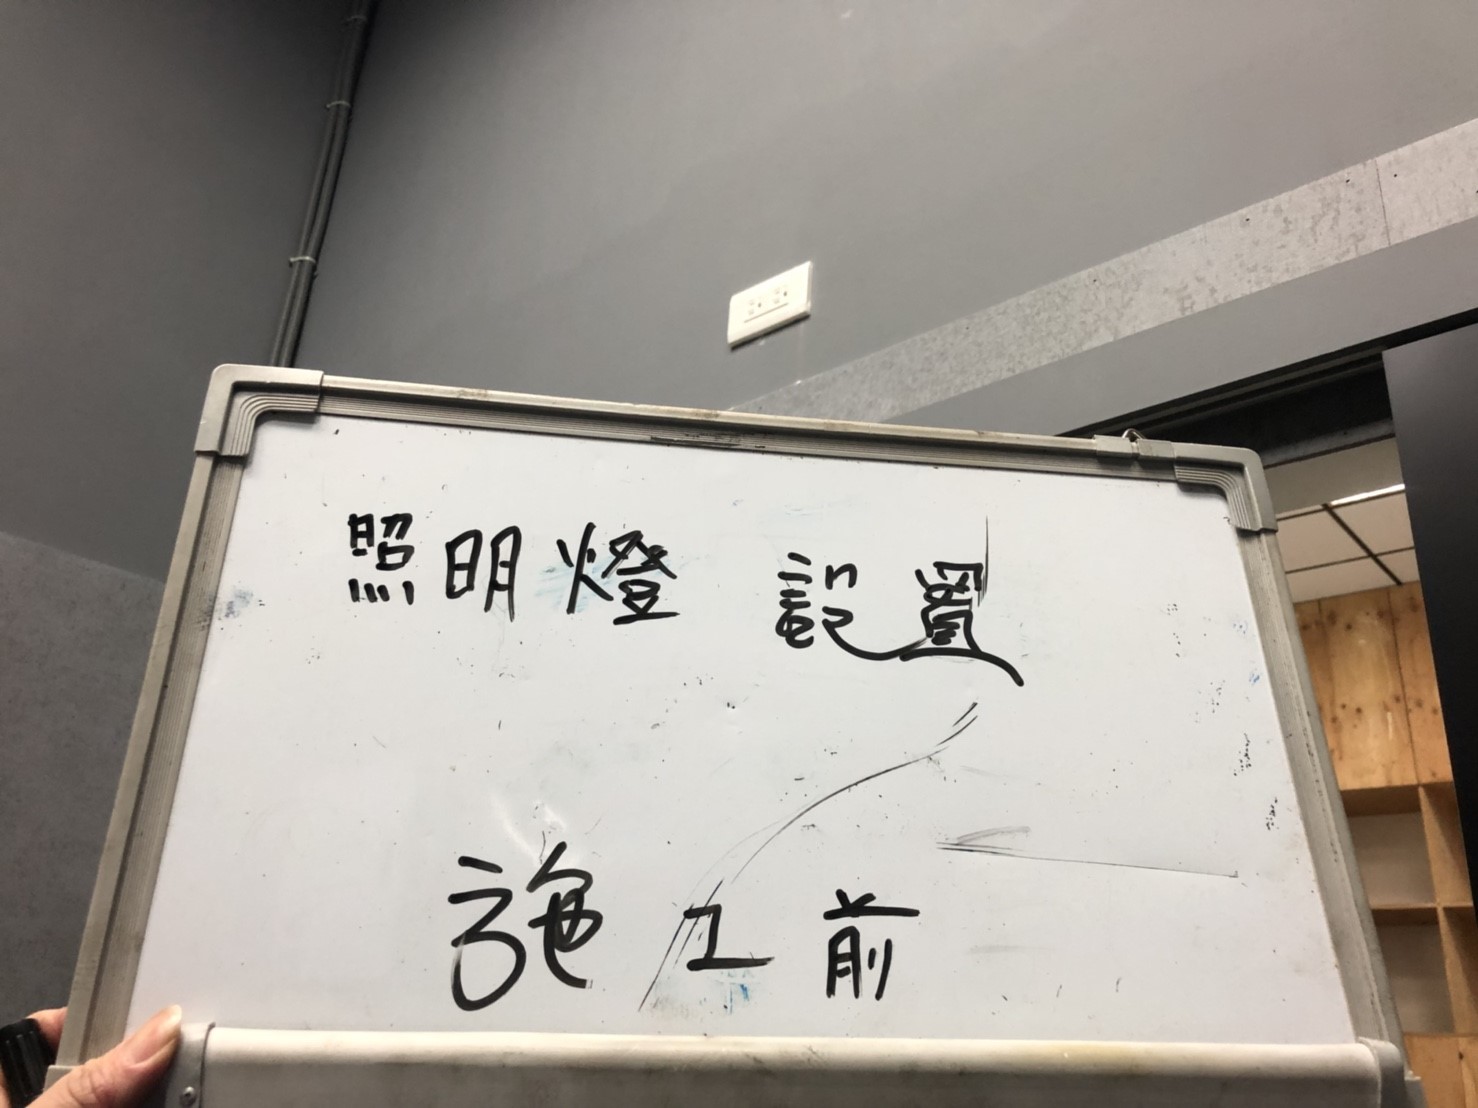 照明燈 設置
施工前